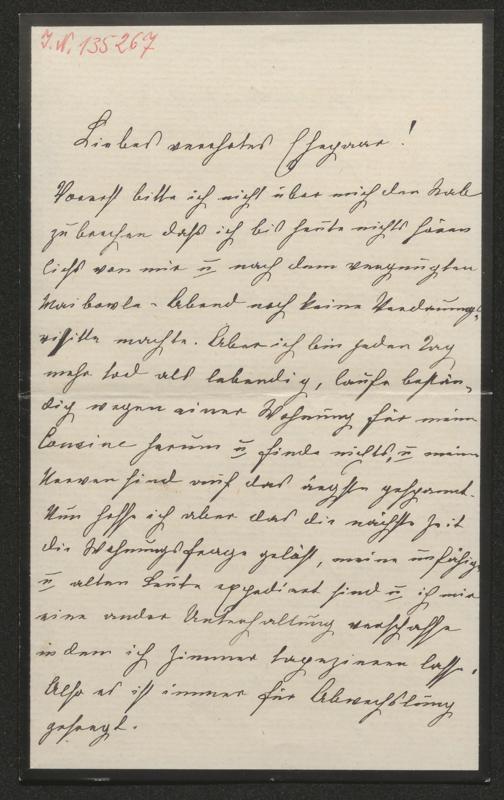 J.N. 135267
Liebes verehrtes Ehepaar!
Vorerst bitte ich nicht über mich den Stab
zu brechen daß ich bis heute nichts hören
ließ von mir u nach dem vergnügten
Maibowle-Abend noch keine Verdauungs-
visitte machte. Aber ich bin jeden Tag
mehr tod als lebendig, laufe bestän-
dig wegen einer Wohnung für meine
Cousine herum u finde nichts, u meine
Nerven sind auf das ärgste gespannt.
Nun hoffe ich aber das die nächste Zeit
die Wohnungsfrage gelöst, meine
u alten Leute expediert sind u ich mir
eine ander Unterhaltung verschaffe
in dem ich Zimmer tapezieren lasse.
Also es ist immer für Abwechslung
gesorgt.